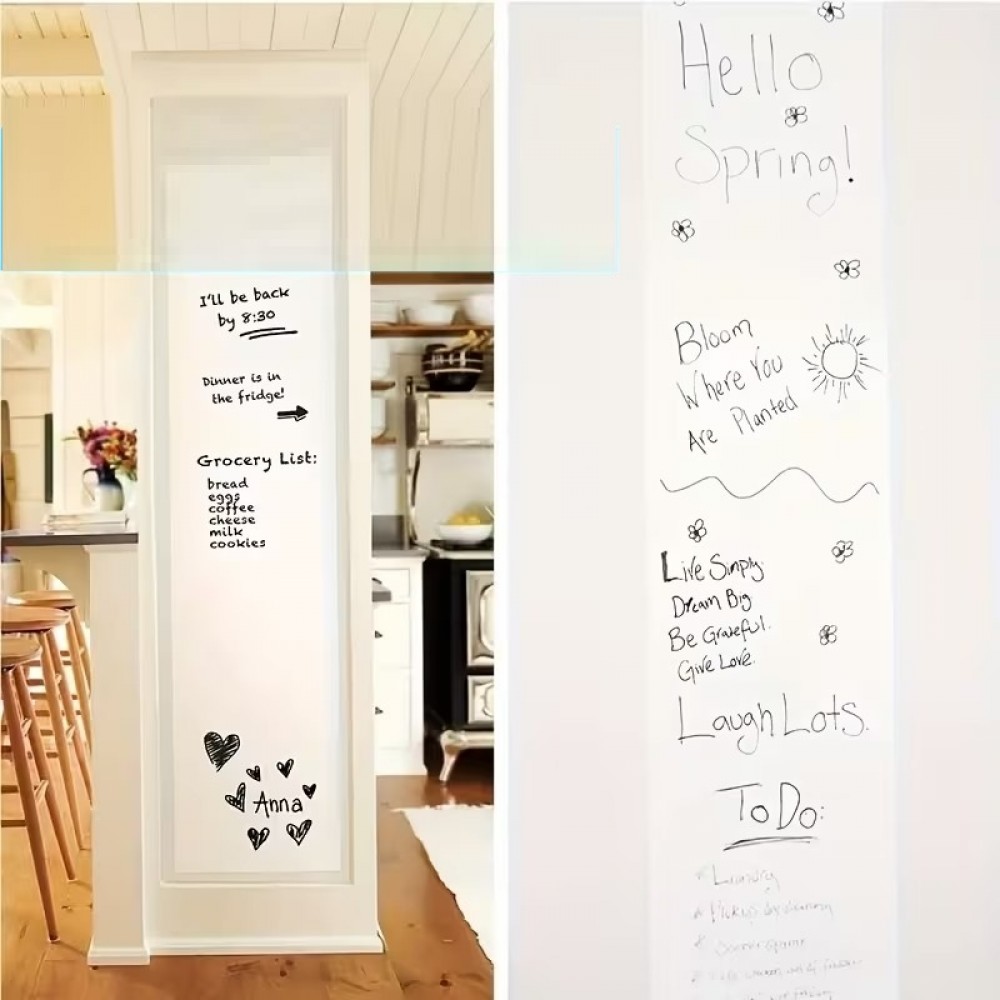 I'll be back
by 8:30
Dinner is in
the fridge!
Grocery List:
bread
eggs
coffee
cheese
milk
cookies
Anna
Hello
Spring!
Bloom
Where You
Are Planted
Live Simply.
Dream Big
Be Grateful.
Give Love.
Laugh Lots.
To Do:
* Laundry